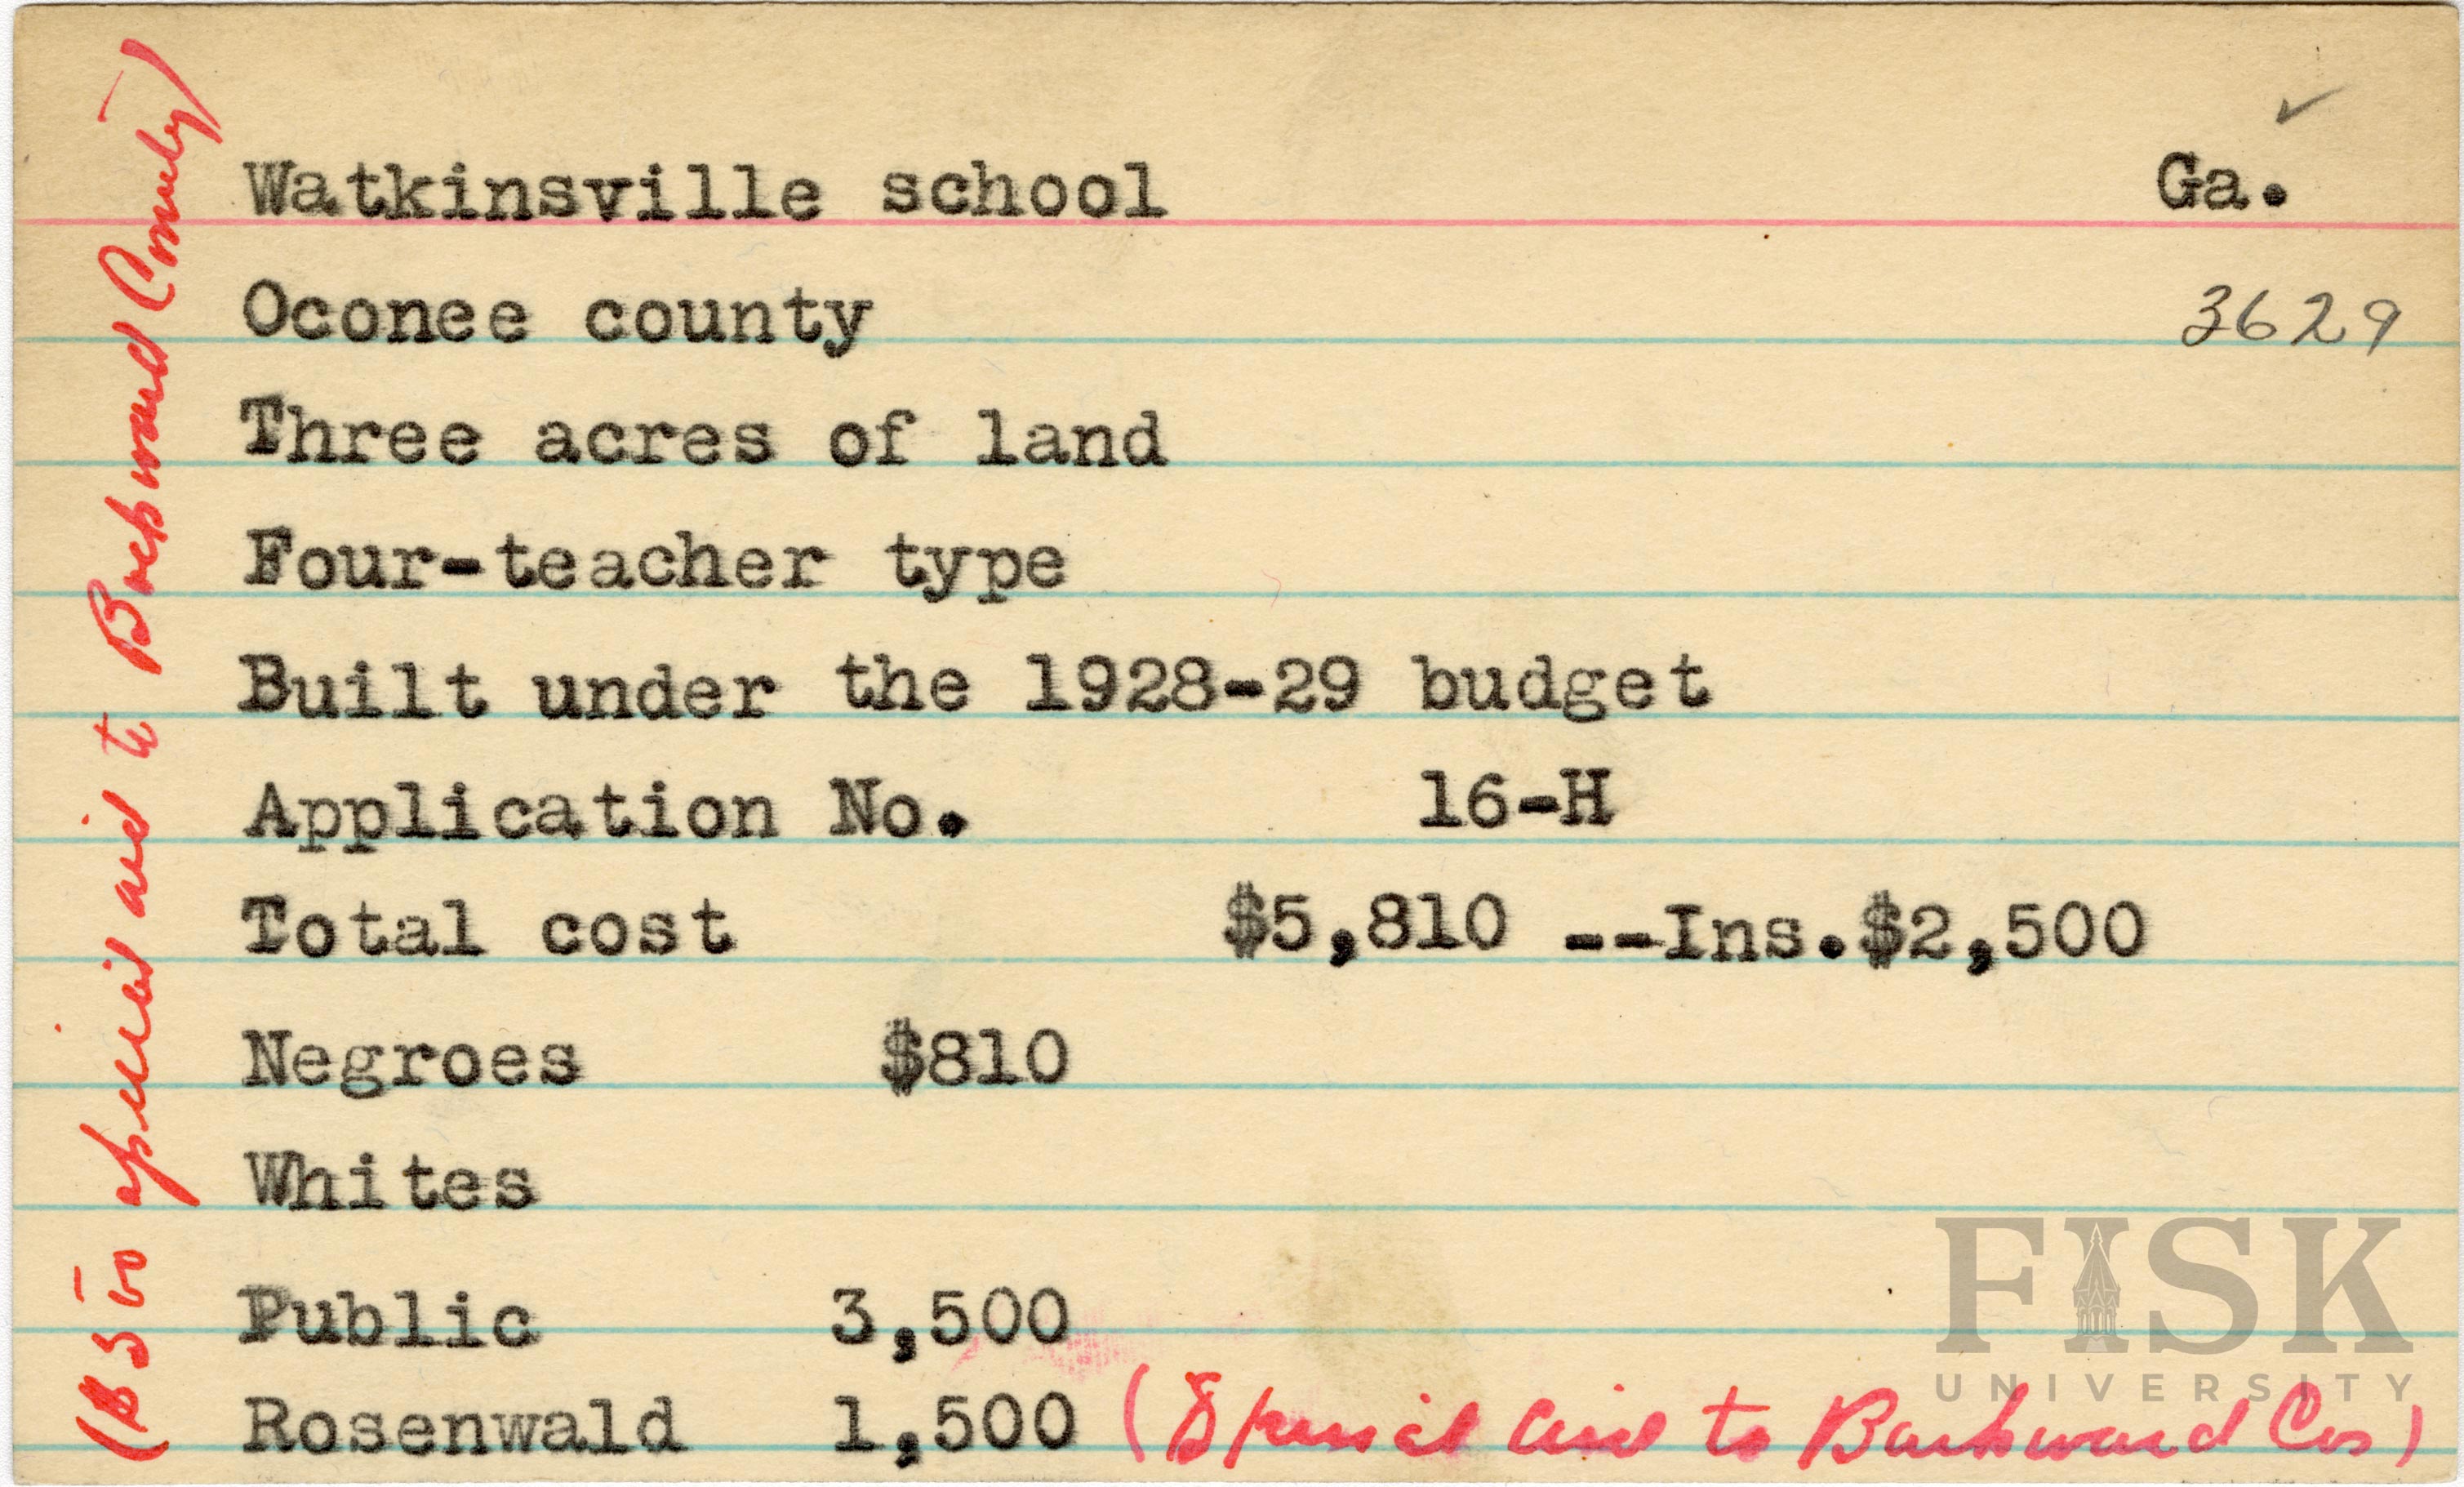 Watkinsville school Ga.
Oconee county 3629
Three acres of land
Four-teacher type
Built under the 1928-29 budget
Application No. 16-H
Total cost $5,810 --Ins.$2,500
Negroes $810
Whites
Public 3,500
Rosenwald 1,500 (Special aid to Backward Cos)
($500 special aid to Backward County)
FISK
UNIVERSITY